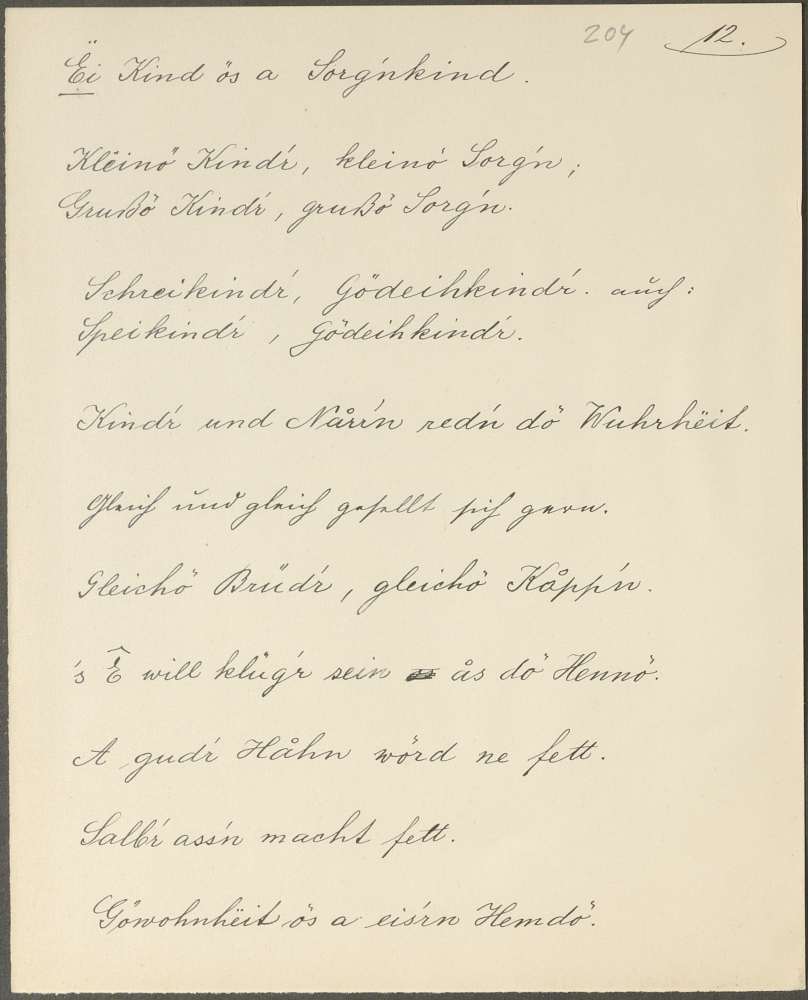 204 12.
Ëi Kind ös a Sorg'nkind.
Klëinö Kind'r, kleinö Sorg'n;
Grußö Kind'r, grußö Sorg'n.
Schreikind'r, Gödeihkind'r. auch:
Speikind'r, Gödeihkind'r.
Kind'r und Når'rn red'n dö Wuhrhëit.
Gleich und gleich gesellt sich gern.
Gleichö Brüd'r, gleichö Kåpp'n.
's Ê will klüg'r sein ås dö Hennö.
A gud'r Håhn wörd ne fett.
Salb'r ass'n macht fett.
Göwohnhëit ös a eis'rn Hemdö.